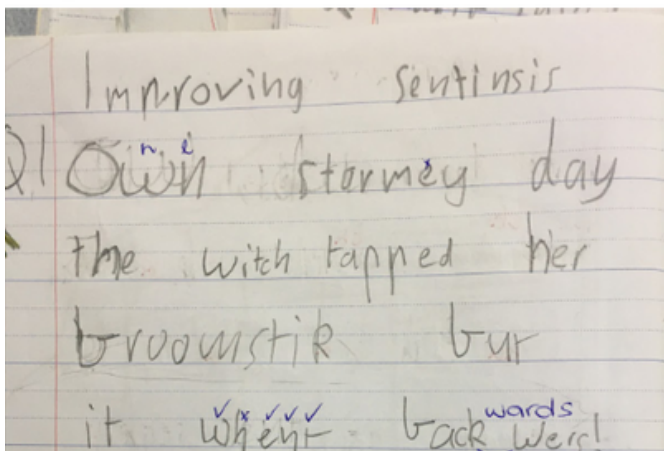 Improving sentinsis
Q1 Own stormey day
the witch tapped her
broomstik but
it whent back weird
wards